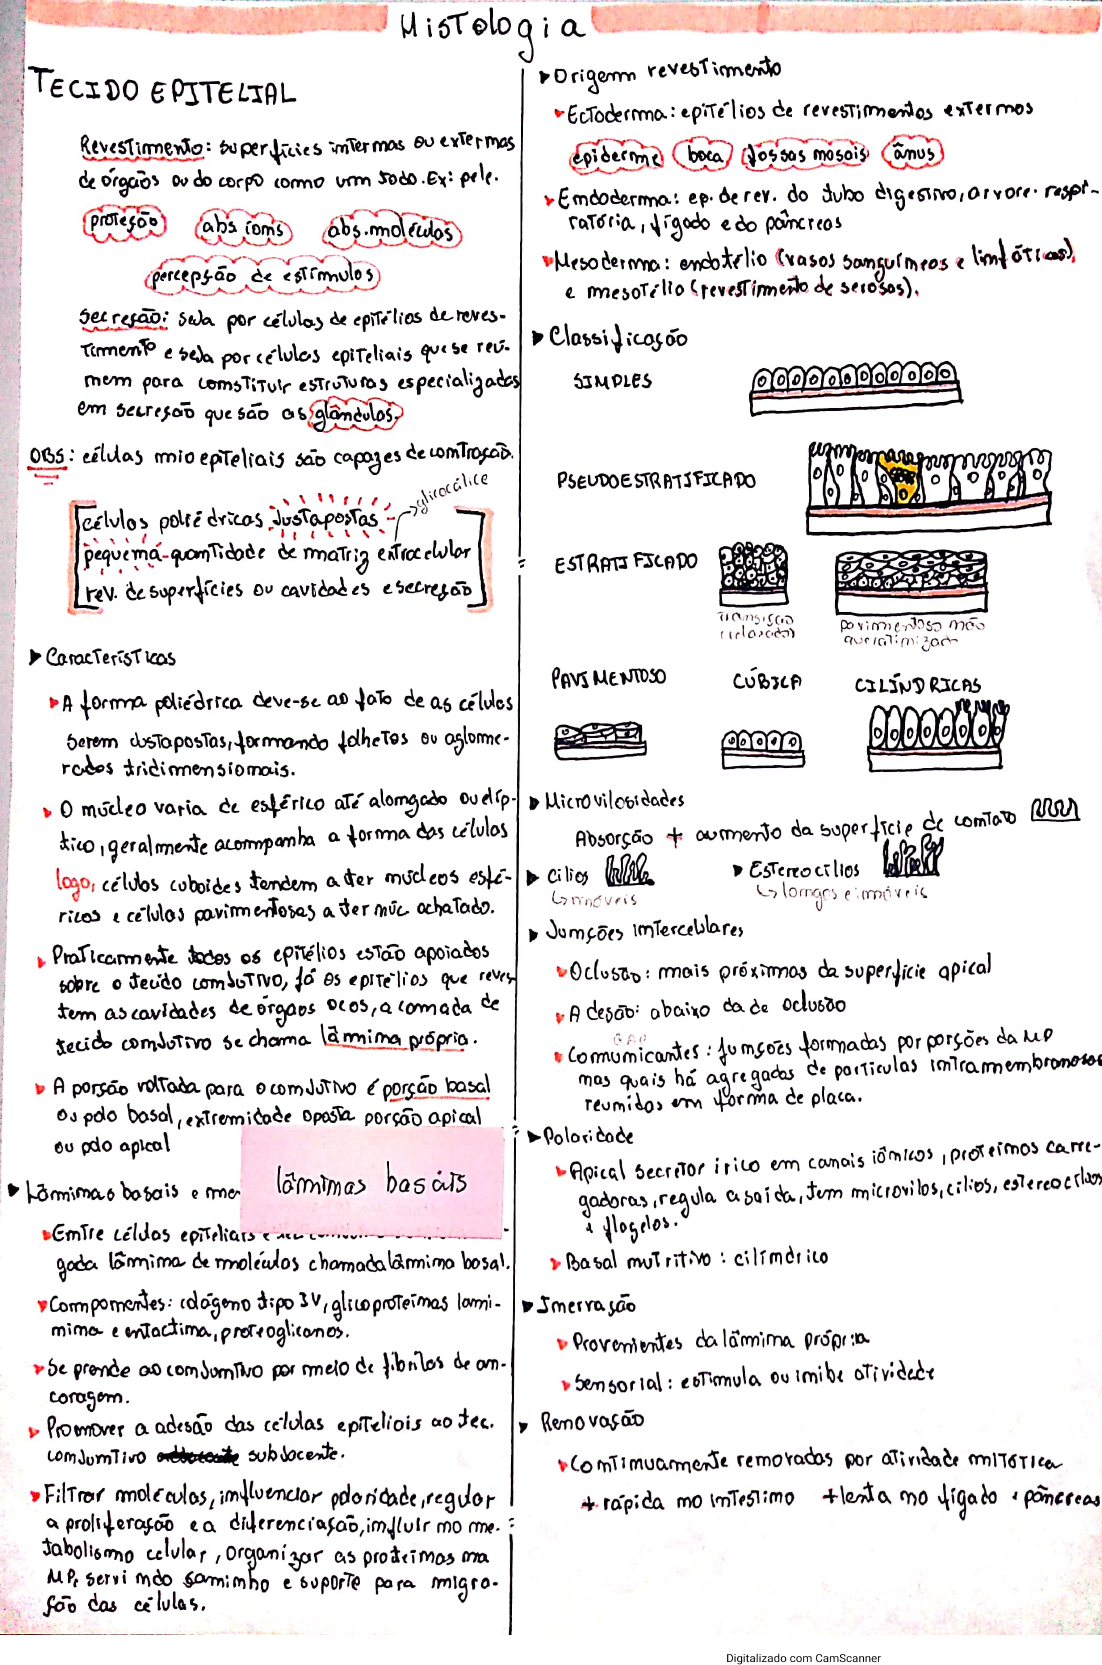 Histologia
TECIDO EPITELIAL
Revestimento: superfícies internas ou externas
de órgãos ou do corpo como um todo. Ex: pele.
proteção abs ions abs. moléculas
percepção de estímulos
Secreção: seja por células de epitélios de reves-
timento e seja por células epiteliais que se reú-
nem para constituir estruturas especializadas
em secreção que são as glândulas.
OBS: células mioepiteliais são capazes de contração.
glicocálice
células poliédricas justapostas
pequena quantidade de matriz extracelular
rev. de superfícies ou cavidades e secreção
Características
A forma poliédrica deve-se ao fato de as células
serem justapostas, formando folhetos ou aglome-
rados tridimensionais.
O núcleo varia de esférico até alongado ou elíp-
tico, geralmente acompanha a forma das células
logo, células cuboides tendem a ter núcleos esfé-
ricos e células pavimentosas a ter núc achatado.
Praticamente todos os epitélios estão apoiados
sobre o tecido conjutivo, já os epitélios que reves
tem as cavidades de órgãos ocos, a camada de
tecido conjutivo se chama lâmina própria.
A porção voltada para o conjutivo é porção basal
ou polo basal, extremidade oposta porção apical
ou polo apical
Lâminas basais e
lâminas basais
Entre células epiteliais e
gada lâmina de moléculas chamada lâmina basal.
Componentes: colágeno tipo IV, glicoproteínas lami-
nina e entactina, proteoglicanos.
Se prende ao conjuntivo por meio de fibrilas de an-
coragem.
Promover a adesão das células epiteliais ao tec.
conjuntivo subjacente.
Filtrar moléculas, influenciar polaridade, regular
a proliferação e a diferenciação, influir no me-
tabolismo celular, organizar as proteínas na
MP, servindo caminho e suporte para migra-
ção das células.
Origem revestimento
Ectoderma: epitélios de revestimentos externos
epiderme boca fossas nasais ânus
Endoderma: ep. de rev. do tubo digestivo, arvore respi-
ratória, fígado e do pâncreas
Mesoderma: endotélio (vasos sanguíneos e linfáticos)
e mesotélio (revestimento de serosas).
Classificação
SIMPLES
PSEUDOESTRATIFICADO
ESTRATIFICADO
transição
(relaxado)
pavimentoso não
queratinizado
PAVIMENTOSO CÚBICA CILÍNDRICAS
Microvilosidades
Absorção + aumento da superfície de contato
Cílios Estereocílios
↳ móveis ↳ longos e imóveis
Junções intercelulares
Oclusão: mais próximas da superfície apical
Adesão: abaixo da de oclusão
GAP
Comunicantes: junções formadas por porções da MP
nas quais há agregados de partículas intramembranosas
reunidas em forma de placa.
Polaridade
Apical secretor: rico em canais iônicos, proteínas carre-
gadoras, regula a saída, tem microvilos, cílios, estereocílios
e flagelos.
Basal nutritivo: cilíndrico
Inervação
Provenientes da lâmina própria
Sensorial: estimula ou inibe atividade
Renovação
Continuamente renovadas por atividade mitótica
+ rápida no intestino + lenta no fígado e pâncreas
Digitalizado com CamScanner